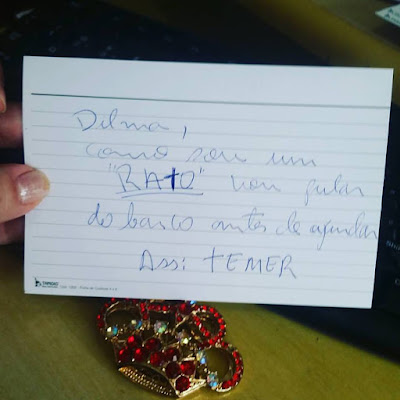 Dilma,
como sou um
"RATO" vou pular
do barco antes de afundar
Ass: TEMER
TILIBRA